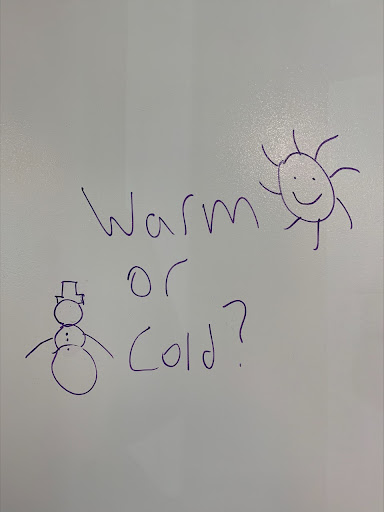 Warm
or
Cold?